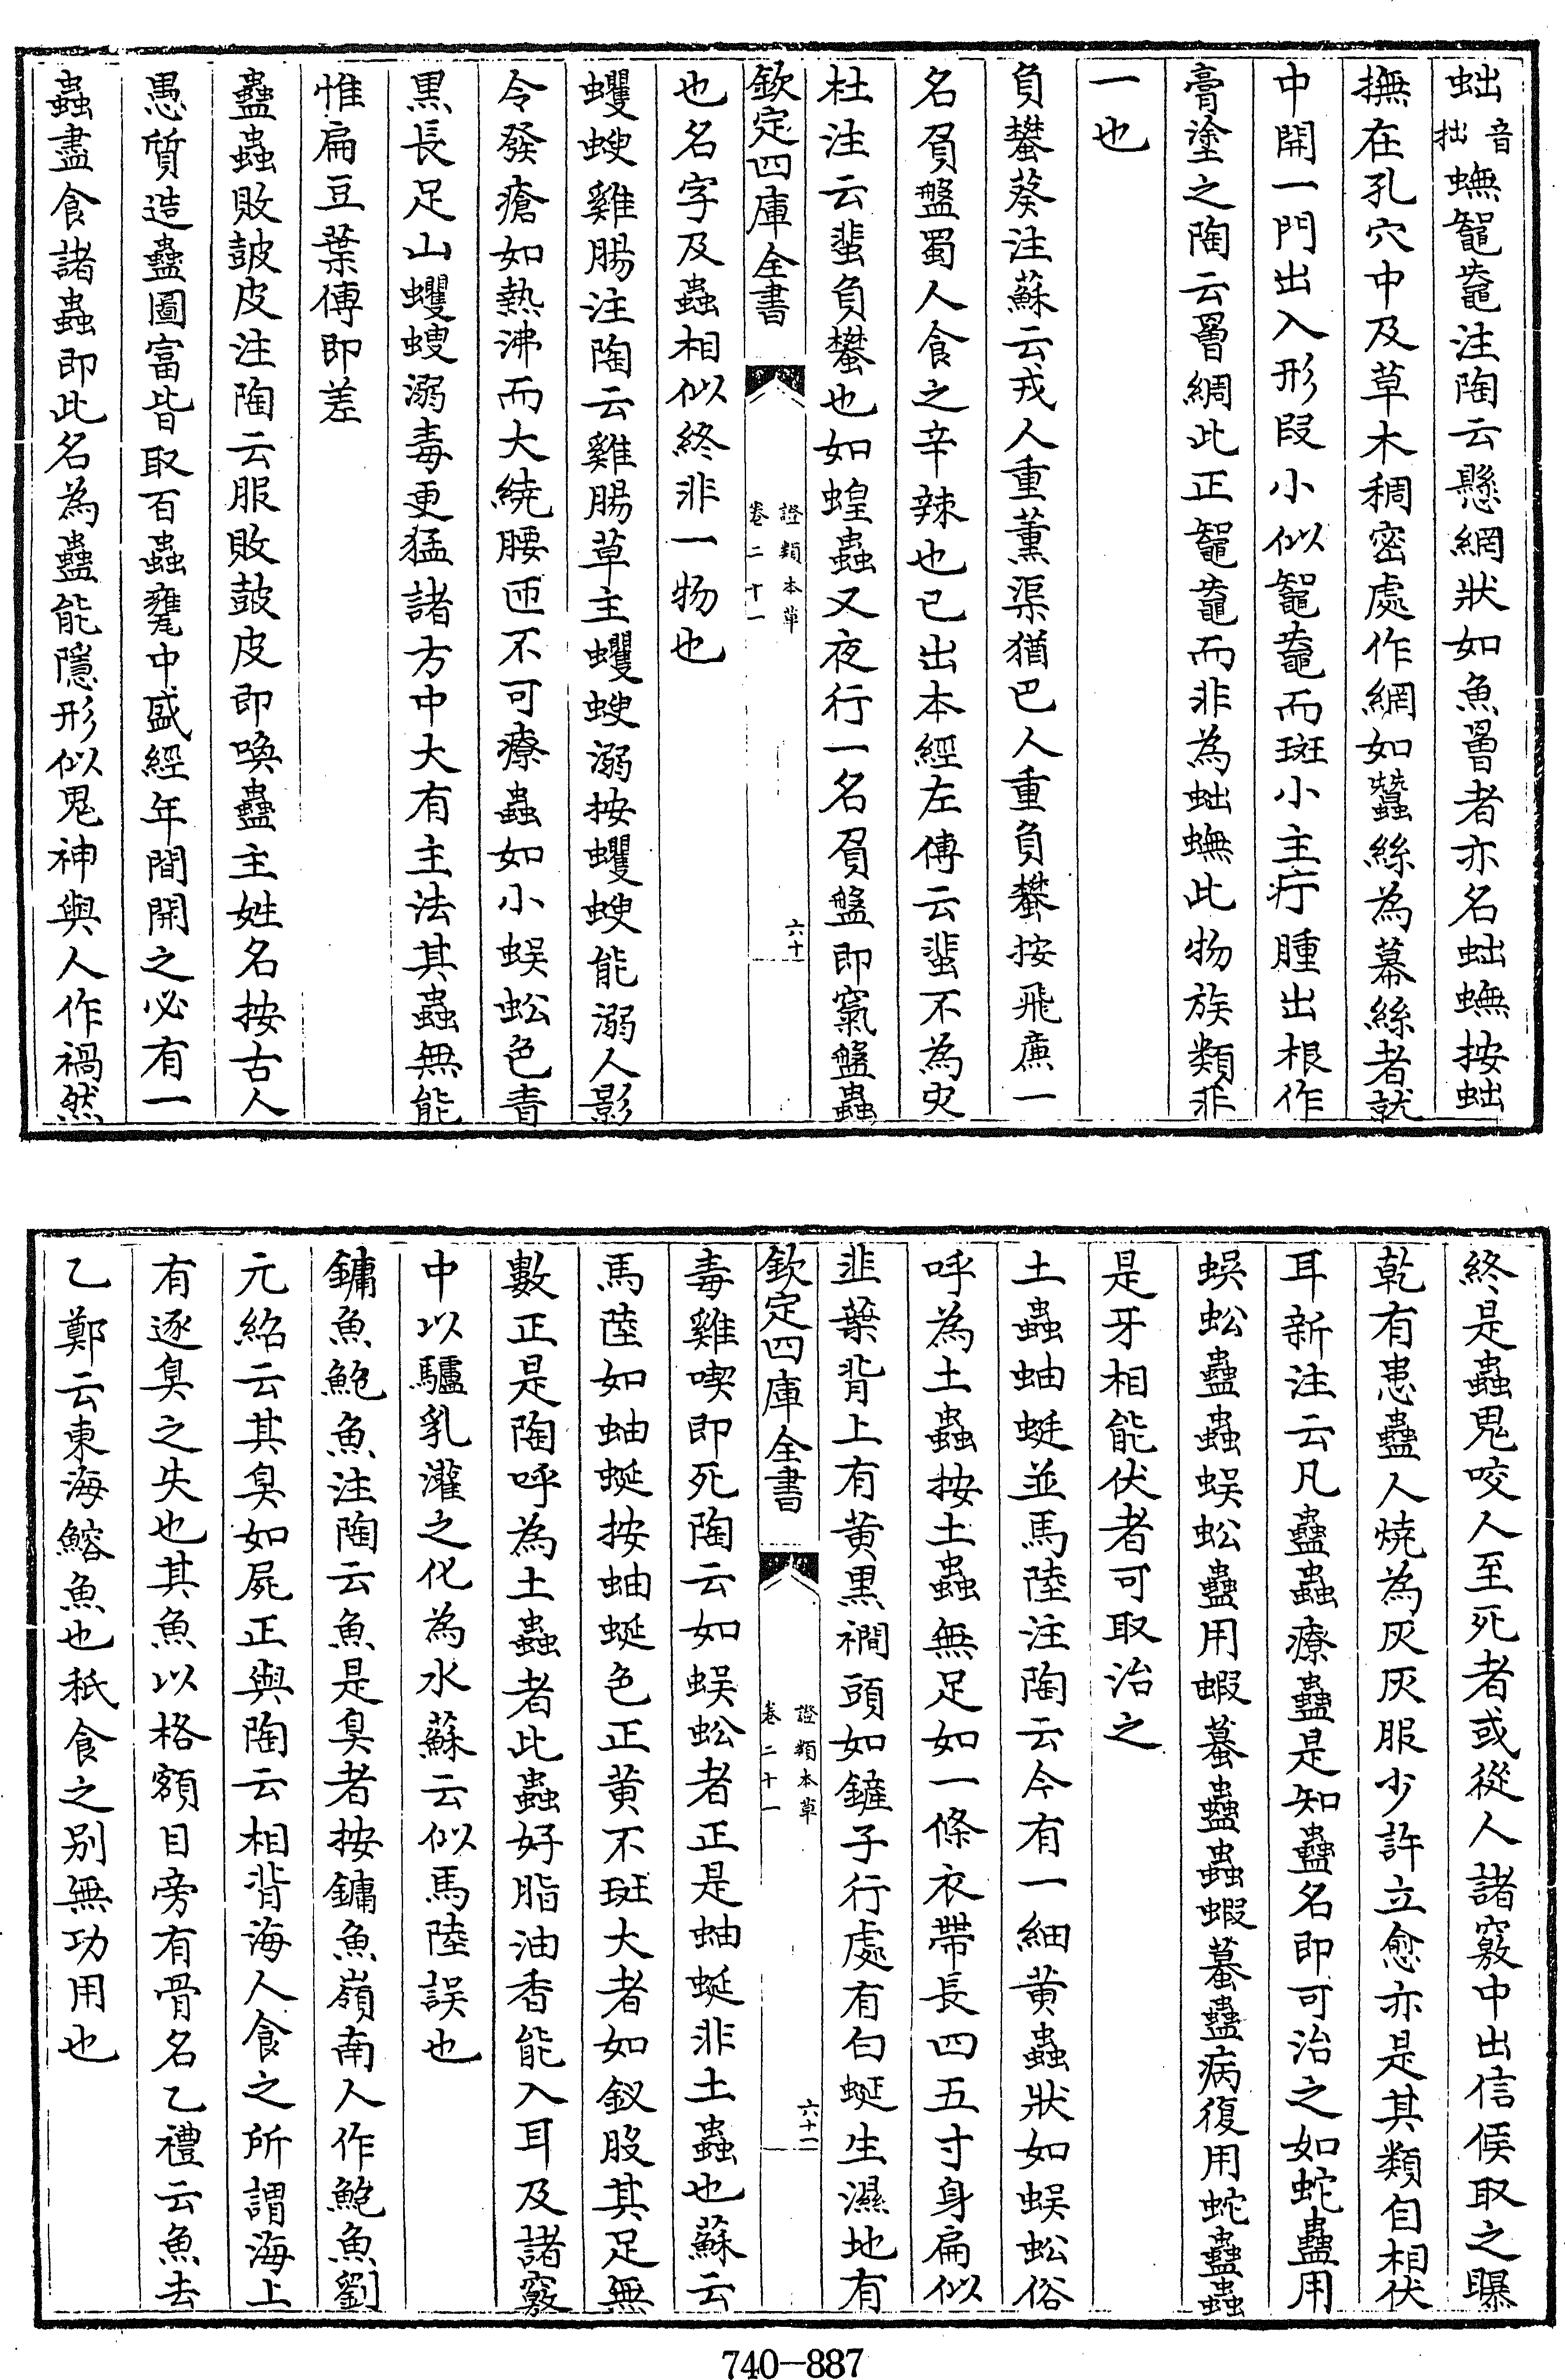 蚰音拙蟱鼅鼄注陶云懸網狀如魚罾者亦名蚰蟱按蚰
撫在孔穴中及草木稠密處作網如蠶絲為幕絲者就
中開一門出入形段小似鼅鼄而斑小主疔腫出根作
膏塗之陶云罾網此正鼅鼄而非為蚰蟱此物族類非
一也
負蠜葵注蘇云戎人重薰渠猶巴人重負蠜按飛廉一
名負盤蜀人食之辛辣也已出本經左傳云蜚不為灾
杜注云蜚負蠜也如蝗蟲又夜行一名負盤即竊盤蟲
欽定四庫全書
證類本草
卷二十一
六十
也名字及蟲相似終非一物也
蠼螋雞腸注陶云雞腸草主蠼螋溺按蠼螋能溺人影
令發瘡如熱沸而大繞腰匝不可療蟲如小蜈蚣色青
黒長足山蠼螋溺毒更猛諸方中大有主法其蟲無能
惟扁豆葉傅即差
蠱蟲敗鼓皮注陶云服敗鼓皮即喚蠱主姓名按古人
愚質造蠱圖富皆取百蟲甕中盛經年間開之必有一
蟲盡食諸蟲即此名為蠱能隱形似鬼神與人作禍然
終是蟲鬼咬人至死者或從人諸竅中出信候取之曝
乾有患蠱人燒為灰灰服少許立愈亦是其類自相伏
耳新注云凡蠱蟲療蠱是知蠱名即可治之如蛇蠱用
蜈蚣蠱蟲蜈蚣蠱用蝦蟇蠱蟲蝦蟇蠱病復用蛇蠱蟲
是牙相能伏者可取治之
土蟲蚰蜓並馬陸注陶云今有一細黄蟲狀如蜈蚣俗
呼為土蟲按土蟲無足如一條衣帶長四五寸身扁似
韭葉背上有黄黒襇頭如鏟子行處有白蜒生濕地有
欽定四庫全書
證類本草
卷二十一
六十一
毒雞喫即死陶云如蜈蚣者正是蚰蜒非土蟲也蘇云
馬陸如蚰蜒按蚰蜒色正黄不斑大者如釵股其足無
數正是陶呼為土蟲者此蟲好脂油香能入耳及諸竅
中以驢乳灌之化為水蘇云似馬陸誤也
鏞魚鮑魚注陶云魚是臭者按鏞魚嶺南人作鮑魚劉
元紹云其臭如屍正與陶云相背海人食之所謂海上
有逐臭之失也其魚以格額目旁有骨名乙禮云魚去
乙鄭云東海鰫魚也秖食之别無功用也
740-887